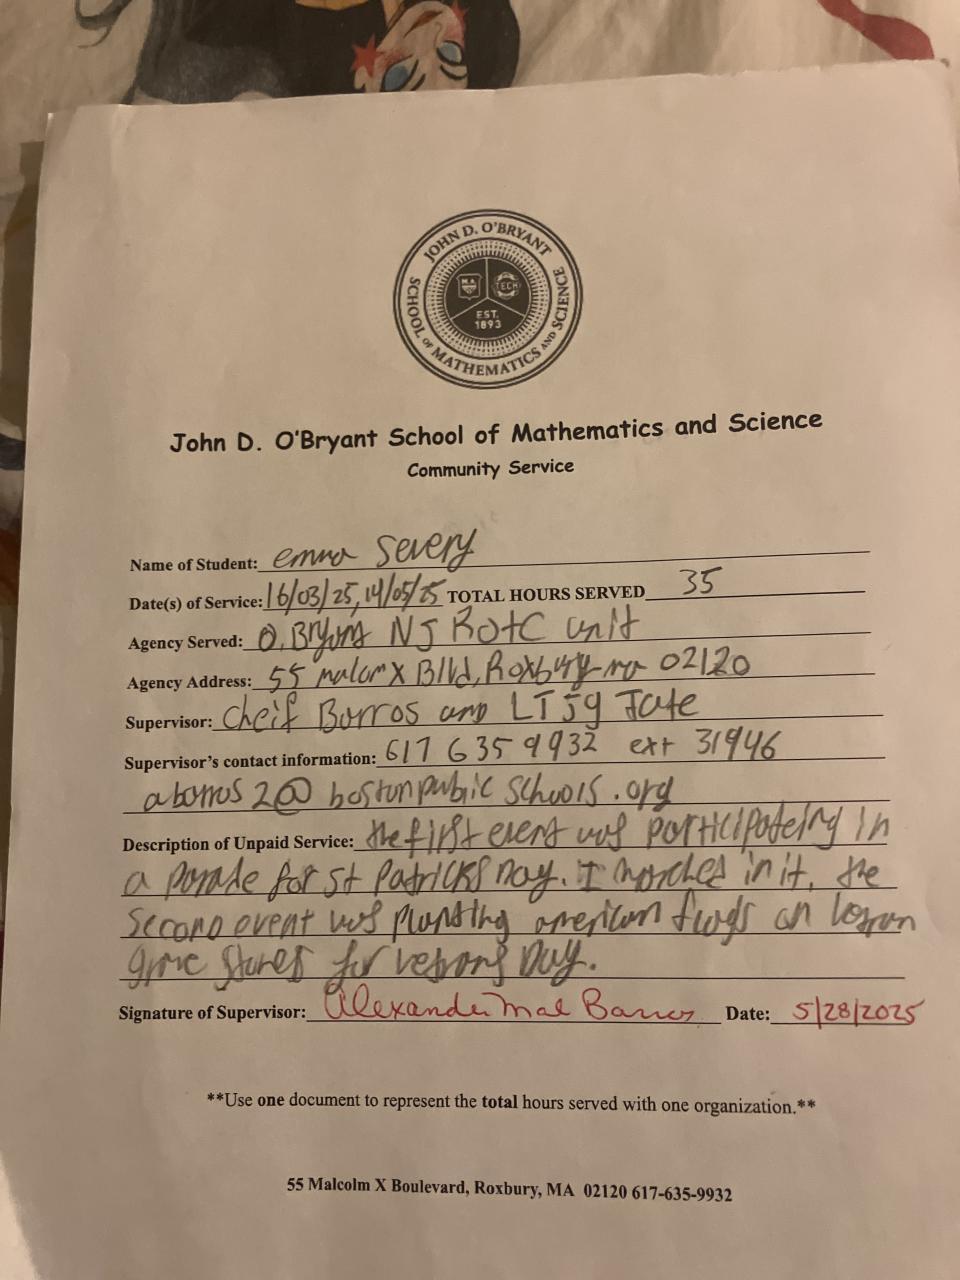 JOHN D. O'BRYANT
SCHOOL OF MATHEMATICS AND SCIENCE
M.A. TECH
EST.
1893
John D. O'Bryant School of Mathematics and Science
Community Service
Name of Student: emma Severy
Date(s) of Service: 16/03/25, 14/05/25 TOTAL HOURS SERVED 35
Agency Served: O,Bryant NJ ROtC unit
Agency Address: 55 malcom X Blvd, Roxbury ma 02120
Supervisor: Cheif Barros and LTJg Tate
Supervisor's contact information: 617 635 9932 ext 31946
abarros2@bostonpublic schools.org
Description of Unpaid Service: the first event was participateing in
a parade for st Patricks Day. I marched in it, the
second event was planting american flags on
grave stones for Day.
Signature of Supervisor: Alexander Barros Date: 5/28/2025
**Use one document to represent the total hours served with one organization.**
55 Malcolm X Boulevard, Roxbury, MA 02120 617-635-9932